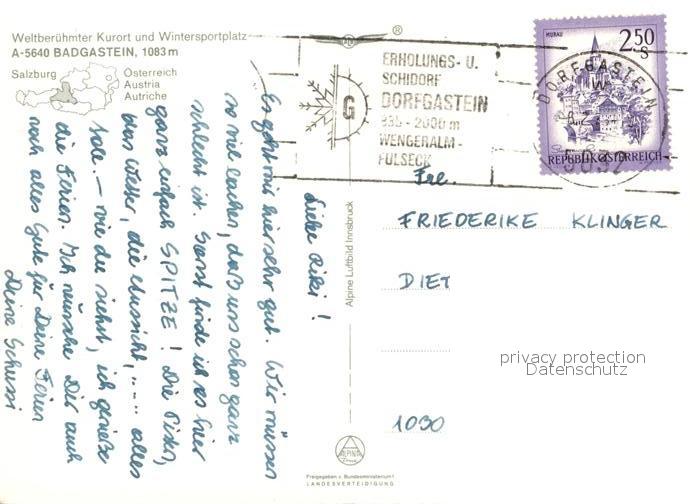 Weltberühmter Kurort und Wintersportplatz
A-5640 BADGASTEIN, 1083 m
Salzburg
Österreich
Austria
Autriche
®
ERHOLUNGS- U.
SCHIDORF
DORFGASTEIN
835-2000 m
WENGERALM-
FULSECK
G
DORFGASTEIN
5632
MURAU
2.50
S
REPUBLIK ÖSTERREICH
Liebe Riki!
Es geht mir hier sehr gut. Wir müssen
so viel lachen, daß uns schon ganz
schlecht ist. Sonst finde ich es hier
ganz einfach SPITZE! Die Pisten,
das Wetter, die Aussicht, ..... alles
tole. – wie du siehst, ich genieße
die Ferien. Ich wünsche Dir auch
noch alles Gute für Deine Ferien
Deine
Alpine Luftbild Innsbruck
Frl.
FRIEDERIKE KLINGER
1030
privacy protection
Datenschutz
ALPINA
Freigegeben v. Bundesministerium f.
LANDESVERTEIDIGUNG